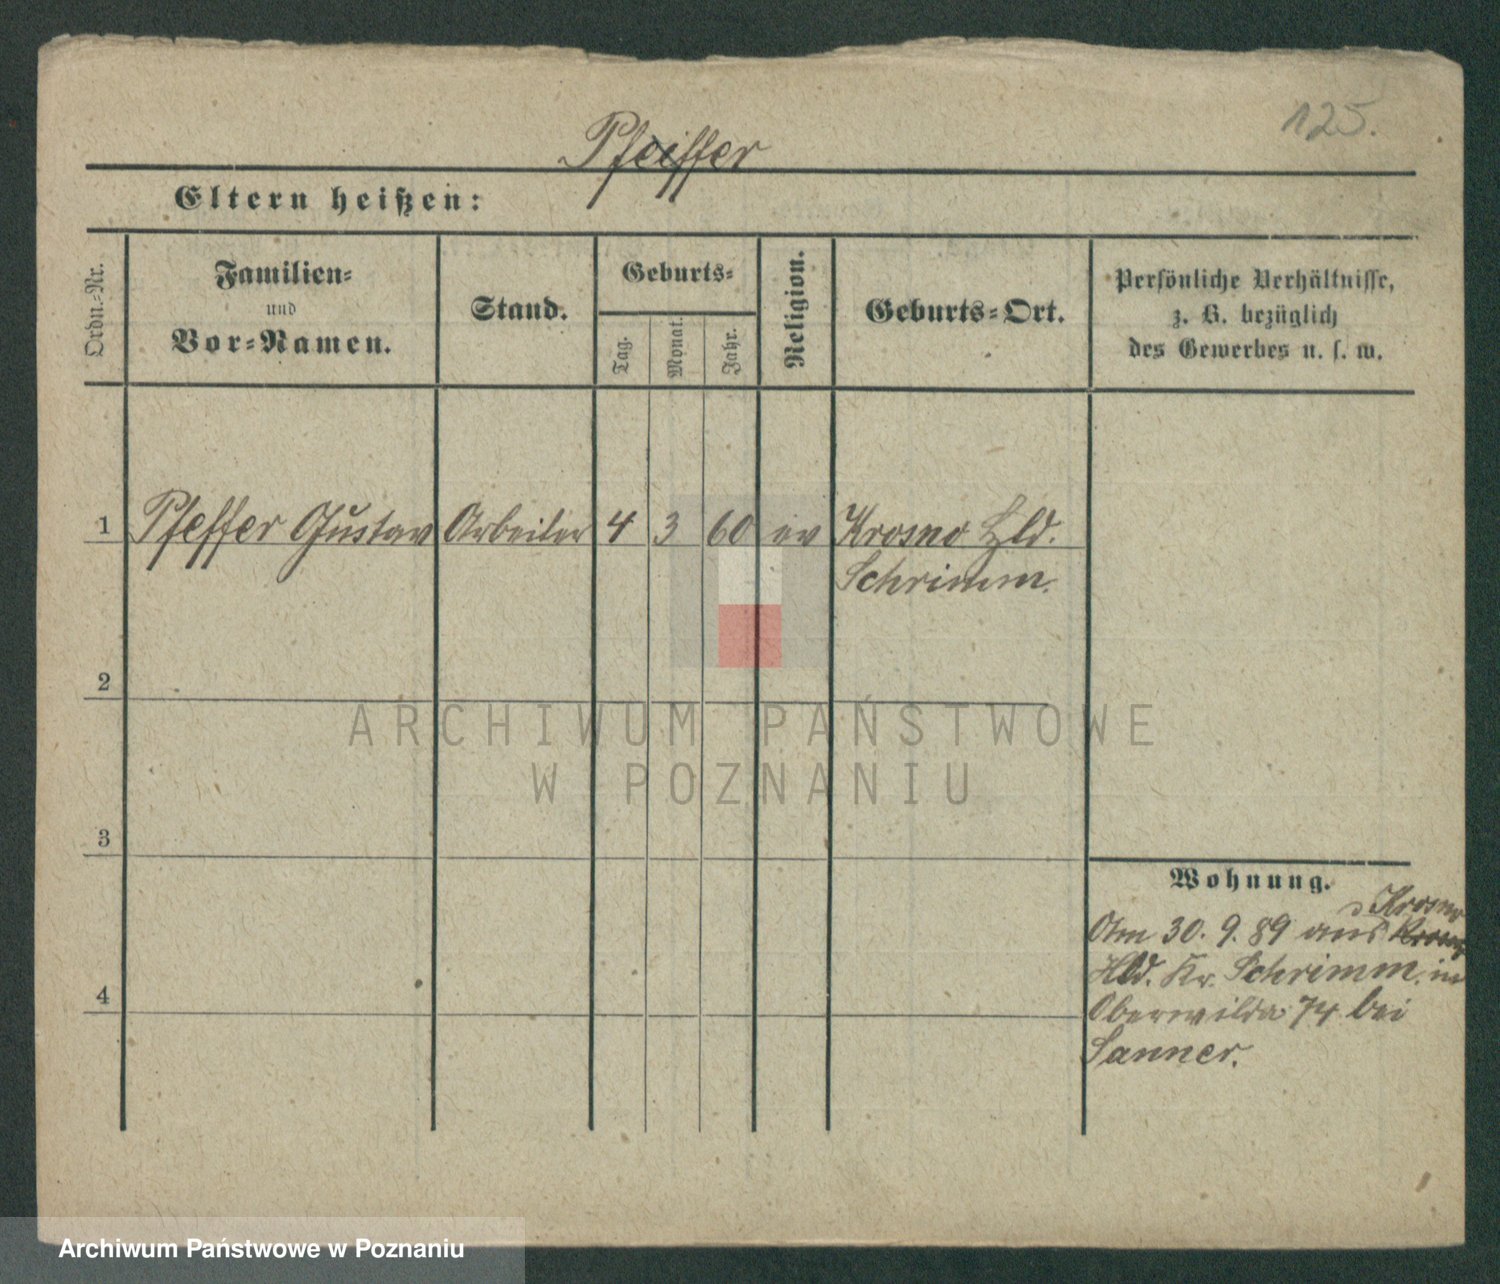 125.
Pfeiffer
Eltern heißen:
Ordn.=Nr.
Familien=
und
Vor=Namen.
Stand.
Geburts=
Tag.
Monat.
Jahr.
Religion.
Geburts=Ort.
Persönliche Verhältnisse,
z. B. bezüglich
des Gewerbes u. s. w.
1 Pfeffer Gustav Arbeiter 4 3 60 ev Krosno Hld.
Schrimm.
2
3
4
Wohnung.
Krosno
Am 30. 9. 89 aus
Hld. Kr. Schrimm. in
Oberwilda 74 bei
Sanner.
ARCHIWUM PAŃSTWOWE
W POZNANIU
Archiwum Państwowe w Poznaniu